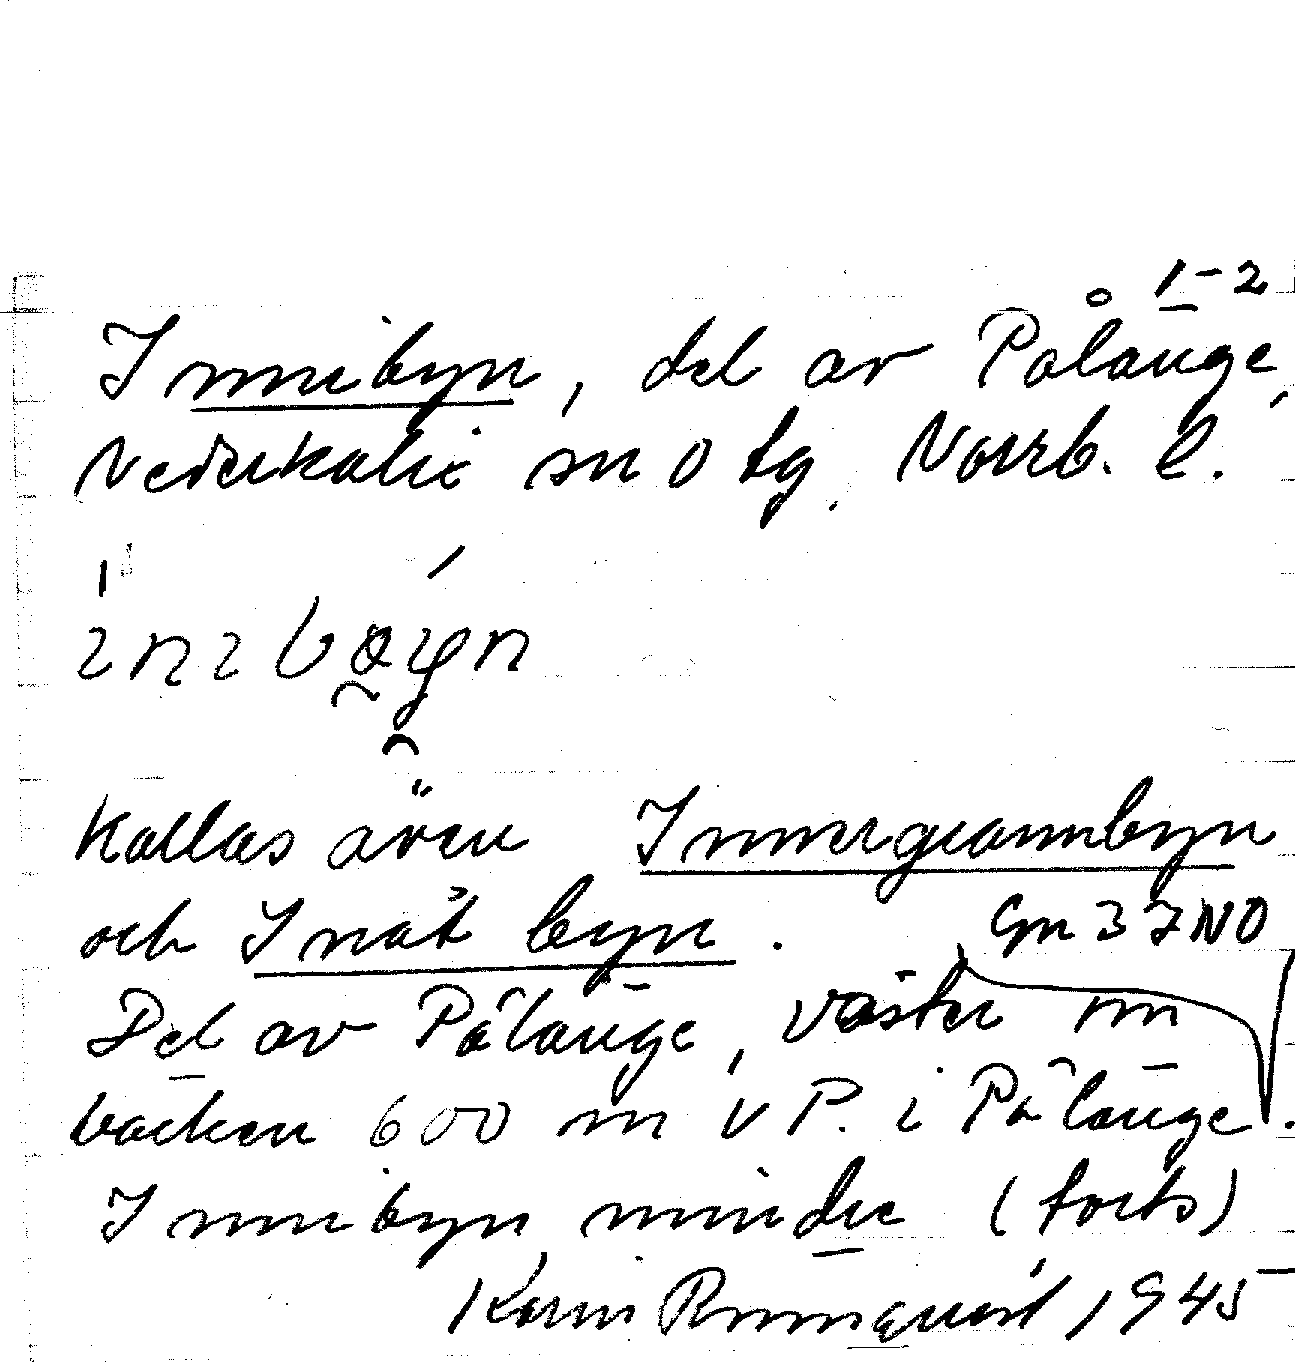 1-2
Innibyn, del av Pålänge,
Nederkalix sn o tg. Norrb. l.
Kallas även Innergrannbyn
och Inåt byn. Gm 37NO
Del av Pålänge, väster om
bäcken 600 m V P. i Pålänge.
Innibyn, mindre (forts)
Karin Runnquist, 1945